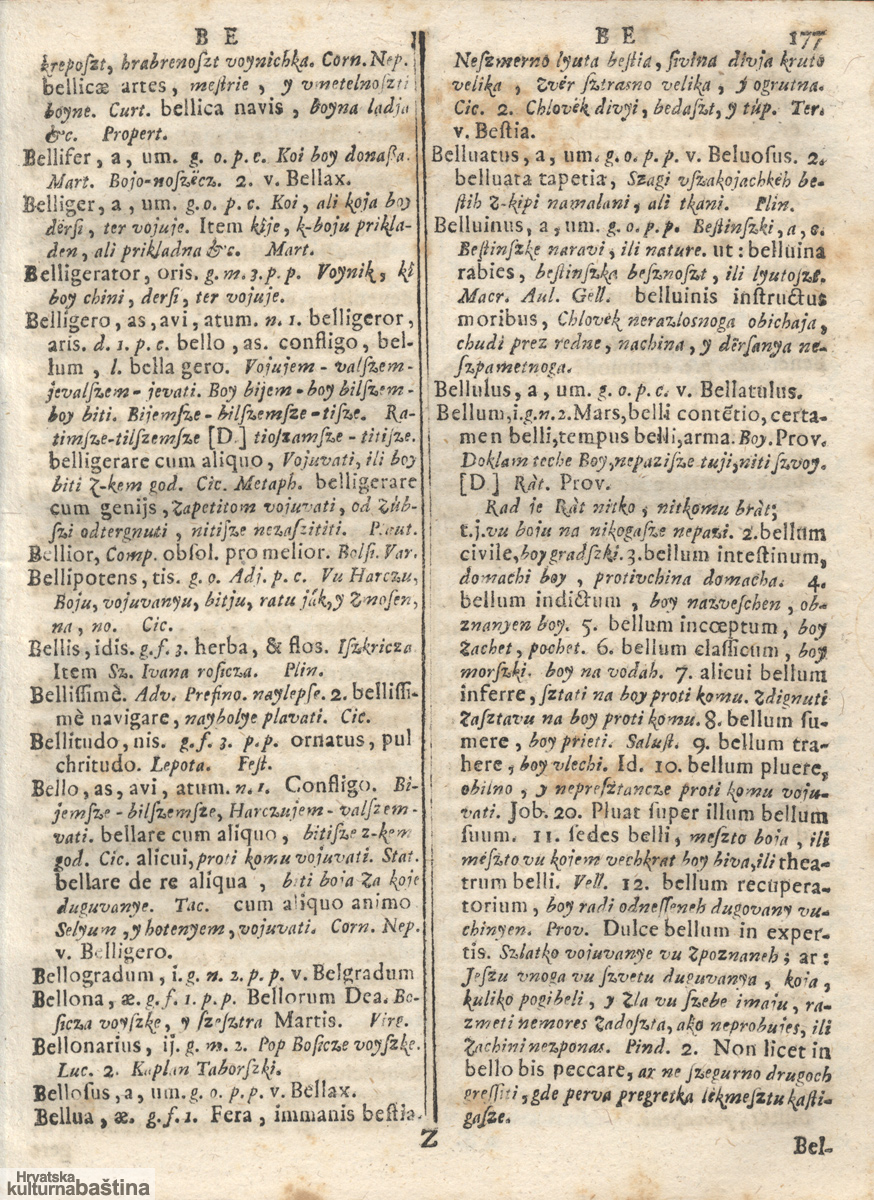 B E
kreposzt, hrabrenoszt voynichka. Corn. Nep.
bellicæ artes, meſtrie, y vmetelnoszti
boyne. Curt. bellica navis, boyna ladja
&c. Propert.
Bellifer, a, um. g. o. p. c. Koi boy donaſſa.
Mart. Bojo-noszëcz. 2. v. Bellax.
Belliger, a, um. g. o. p. c. Koi, ali koja boy
dërſi, ter vojuje. Item kîje, k-boju prikla-
den, ali prikladna &c. Mart.
Belligerator, oris. g. m. 3. p. p. Voynik, kî
boy chini, derſi, ter vojuje.
Belligero, as, avi, atum. n. 1. belligeror,
aris. d. 1. p. c. bello, as. confligo, bel-
lum, l. bella gero. Vojujem - valszem-
jevalszem - jevati. Boy bijem - boy bilszem-
boy biti. Bijemsze - bilszemsze - tisze. Ra-
timsze-tilszemsze [D.] tioszamsze - titisze.
belligerare cum aliquo, Vojuvati, ili boy
biti z-kem god. Cic. Metaph. belligerare
cum genijs, zapetitom vojuvati, od zúb-
szi odtergnuti, nitisze nezasztititi. Plaut.
Bellior, Comp. obſol. pro melior. Bolſi. Var.
Bellipotens, tis. g. o. Adj. p. c. Vu Harczu,
Boju, vojuvanyu, bitju, ratu ják, y zmosen,
na, no. Cic.
Bellis, idis. g. f. 3. herba, & flos. Iszkricza
Item Sz. Ivana roſicza. Plin.
Belliſſimè. Adv. Prefino. naylepſe. 2. belliſſi-
mè navigare, naybolye plavati. Cic.
Bellitudo, nis. g. f. 3. p. p. ornatus, pul
chritudo. Lepota. Feſt.
Bello, as, avi, atum. n. 1. Confligo. Bi-
jemsze - bilszemsze, Harczujem - valszem-
vati. bellare cum aliquo, bitisze z-kem
god. Cic. alicui, proti komu vojuvati. Stat.
bellare de re aliqua, biti boja za koje
duguvanye. Tac. cum aliquo animo
Selyum, y hotenyem, vojuvati. Corn. Nep.
v. Belligero.
Bellogradum, i. g. n. 2. p. p. v. Belgradum
Bellona, æ. g. f. 1. p. p. Bellorum Dea. Bo-
ſicza voyszke, y szesztra Martis. Virg.
Bellonarius, ij. g. m. 2. Pop Boſicze voyszke.
Luc. 2. Kaplan Taborszki.
Belloſus, a, um. g. o. p. p. v. Bellax.
Bellua, æ. g. f. 1. Fera, immanis beſtia.
Z
B E 177
Neszmerno lyuta beſtia, ſivina divja kruto
velika, zvêr sztrasno velika, y ogrutna.
Cic. 2. Chlovêk divyi, bedaszt, y túp. Ter.
v. Beſtia.
Belluatus, a, um. g. o. p. p. v. Beluoſus. 2.
belluata tapetia, Szagi vszakojachkêh be-
ſtih z-kipi namalani, ali tkáni. Plin.
Belluinus, a, um. g. o. p. p. Beſtinszki, a, o.
Beſtinszke naravi, ili nature. ut: belluina
rabies, beſtinszka besznoszt, ili lyutoszt.
Macr. Aul. Gell. belluinis inſtructus
moribus, Chlovêk nerazlosnoga obichaja,
chudi prez redne, nachina, y dërſanya ne-
szpametnoga.
Bellulus, a, um. g. o. p. c. v. Bellatulus.
Bellum, i. g. n. 2. Mars, belli contẽtio, certa-
men belli, tempus belli, arma. Boy. Prov.
Doklam teche Boy, nepazisze tuji, niti szvoy.
[D.] Rât. Prov.
Rad je Rât nitko, nitkomu brât;
t. j. vu boju na nikogasze nepazi. 2. bellum
civile, boy gradszki. 3. bellum inteſtinum,
domachi boy, protivchina domacha. 4.
bellum indictum, boy nazveschen, ob-
znanyen boy. 5. bellum incœptum, boy
zachet, pochet. 6. bellum claſſicum, boy
morszki. boy na vodah. 7. alicui bellum
inferre, sztati na boy proti komu. zdignuti
zasztavu na boy proti komu. 8. bellum ſu-
mere, boy prieti. Saluſt. 9. bellum tra-
here, boy vlechi. Id. 10. bellum pluere,
obilno, y nepresztancze proti komu voju-
vati. Job. 20. Pluat ſuper illum bellum
ſuum. 11. ſedes belli, meszto boja, ili
mészto vu kojem vechkrat boy biva, ili thea-
trum belli. Vell. 12. bellum recupera-
torium, boy radi odneſſeneh dugovany vu-
chinyen. Prov. Dulce bellum in exper-
tis. Szlatko vojuvanye vu zpoznaneh; ar:
Jeszu vnoga vu szvetu duguvanya, koja,
kuliko pogibeli, y zla vu szebe imaju, ra-
zmeti nemores zadoszta, ako neprobujes, ili
zachini nezponas. Pind. 2. Non licet in
bello bis peccare, ar ne szegurno drugoch
greſſiti, gde perva pregreska lêkmesztu kaſti-
gasze.
Bel-
Hrvatska
kulturnabaština